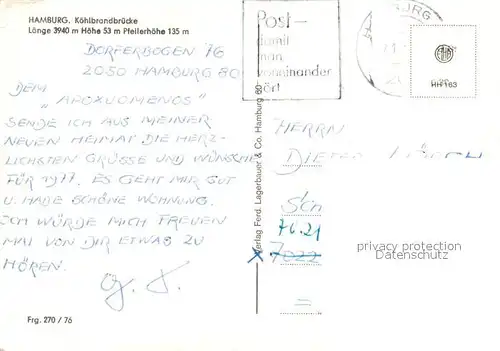 HAMBURG. Köhlbrandbrücke
Länge 3940 m Höhe 53 m Pfeilerhöhe 135 m
DORFERBOGEN 76
2050 HAMBURG 80
DEM
„APOXUOMENOS"
SENDE ICH AUS MEINER
NEUEN HEIMAT DIE HERZ-
LICHSTEN GRÜSSE UND WÜNSCHE
FÜR 1977. ES GEHT MIR GUT
U. HABE SCHÖNE WOHNUNG.
ICH WÜRDE MICH FREUEN
MAL VON DIR ETWAS ZU
HÖREN.
Frg. 270 / 76
Verlag Ferd. Lagerbauer & Co. Hamburg 60
Post –
damit
man
voneinander
hört
HH163
HERRN
DIETER
7621
7022
privacy protection
Datenschutz